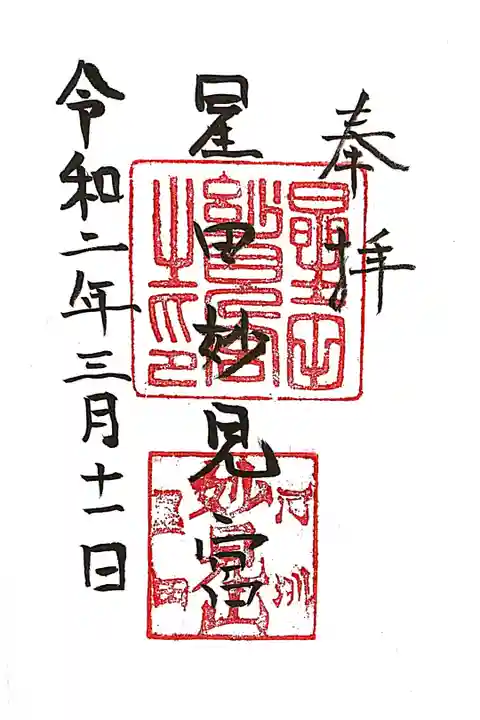 奉拝
星田妙見宮
令和二年三月十一日
星田
妙見宮
之印
河州
妙見山
星田